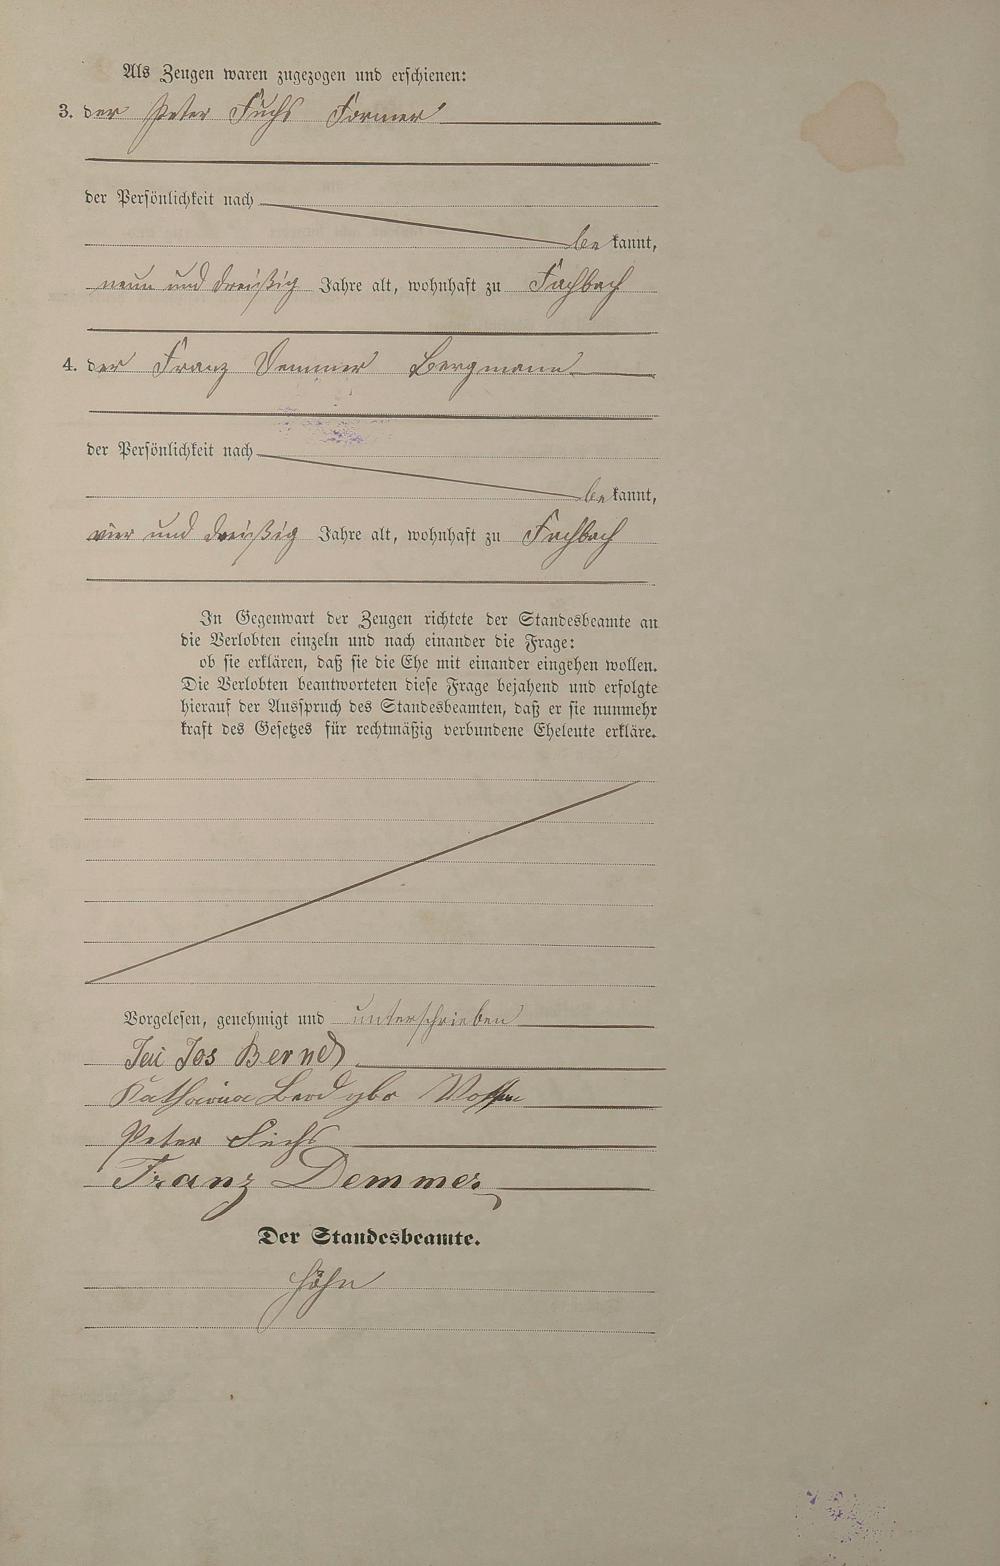 Als Zeugen waren zugezogen und erschienen:
3. der Peter Fuchs Former
der Persönlichkeit nach
be kannt,
neun und dreißig Jahre alt, wohnhaft zu Fachbach
4. der Franz Demmer Bergmann
der Persönlichkeit nach
be kannt,
vier und dreißig Jahre alt, wohnhaft zu Fachbach
In Gegenwart der Zeugen richtete der Standesbeamte an
die Verlobten einzeln und nach einander die Frage:
ob sie erklären, daß sie die Ehe mit einander eingehen wollen.
Die Verlobten beantworteten diese Frage bejahend und erfolgte
hierauf der Ausspruch des Standesbeamten, daß er sie nunmehr
kraft des Gesetzes für rechtmäßig verbundene Eheleute erkläre.
Vorgelesen, genehmigt und unterschrieben
Jos Bernd
Katharina
Peter Fuchs
Franz Demmer
Der Standesbeamte.
Höhn